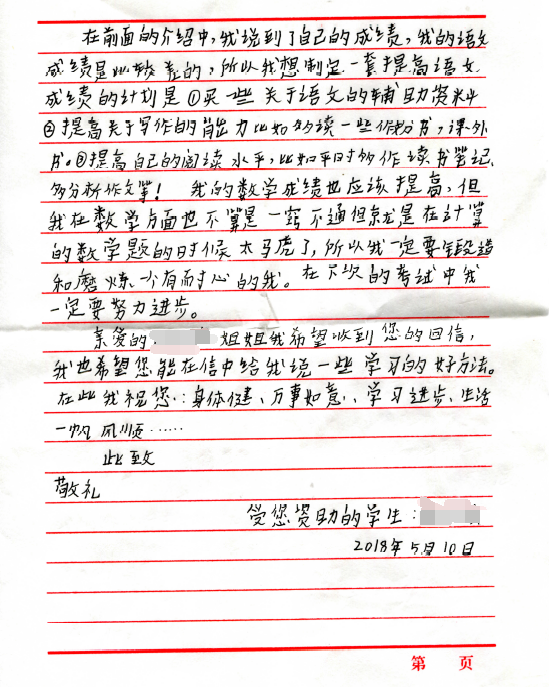 在前面的介绍中,我说到了自己的成绩,我的语文
成绩是比较差的,所以我想制定一套提高语文
成绩的计划是①买一些关于语文的辅助资料
②提高关于写作的能力比如多读一些作文书,课外
书。③提高自己的阅读水平,比如平时多作读书笔记、
多分析作文等! 我的数学成绩也应该提高,但
我在数学方面也不算是一窍不通但就是在计算
的数学题的时候太马虎了,所以我一定要锻造
和磨炼一个有耐心的我。在下次的考试中我
一定要努力进步。
亲爱的 姐姐我希望收到您的回信,
我也希望您能在信中给我说一些学习的好方法。
在此我祝您:身体健、万事如意、学习进步、生活
一帆风顺……
此致
敬礼
受您资助的学生:
2018年5月10日
第 页